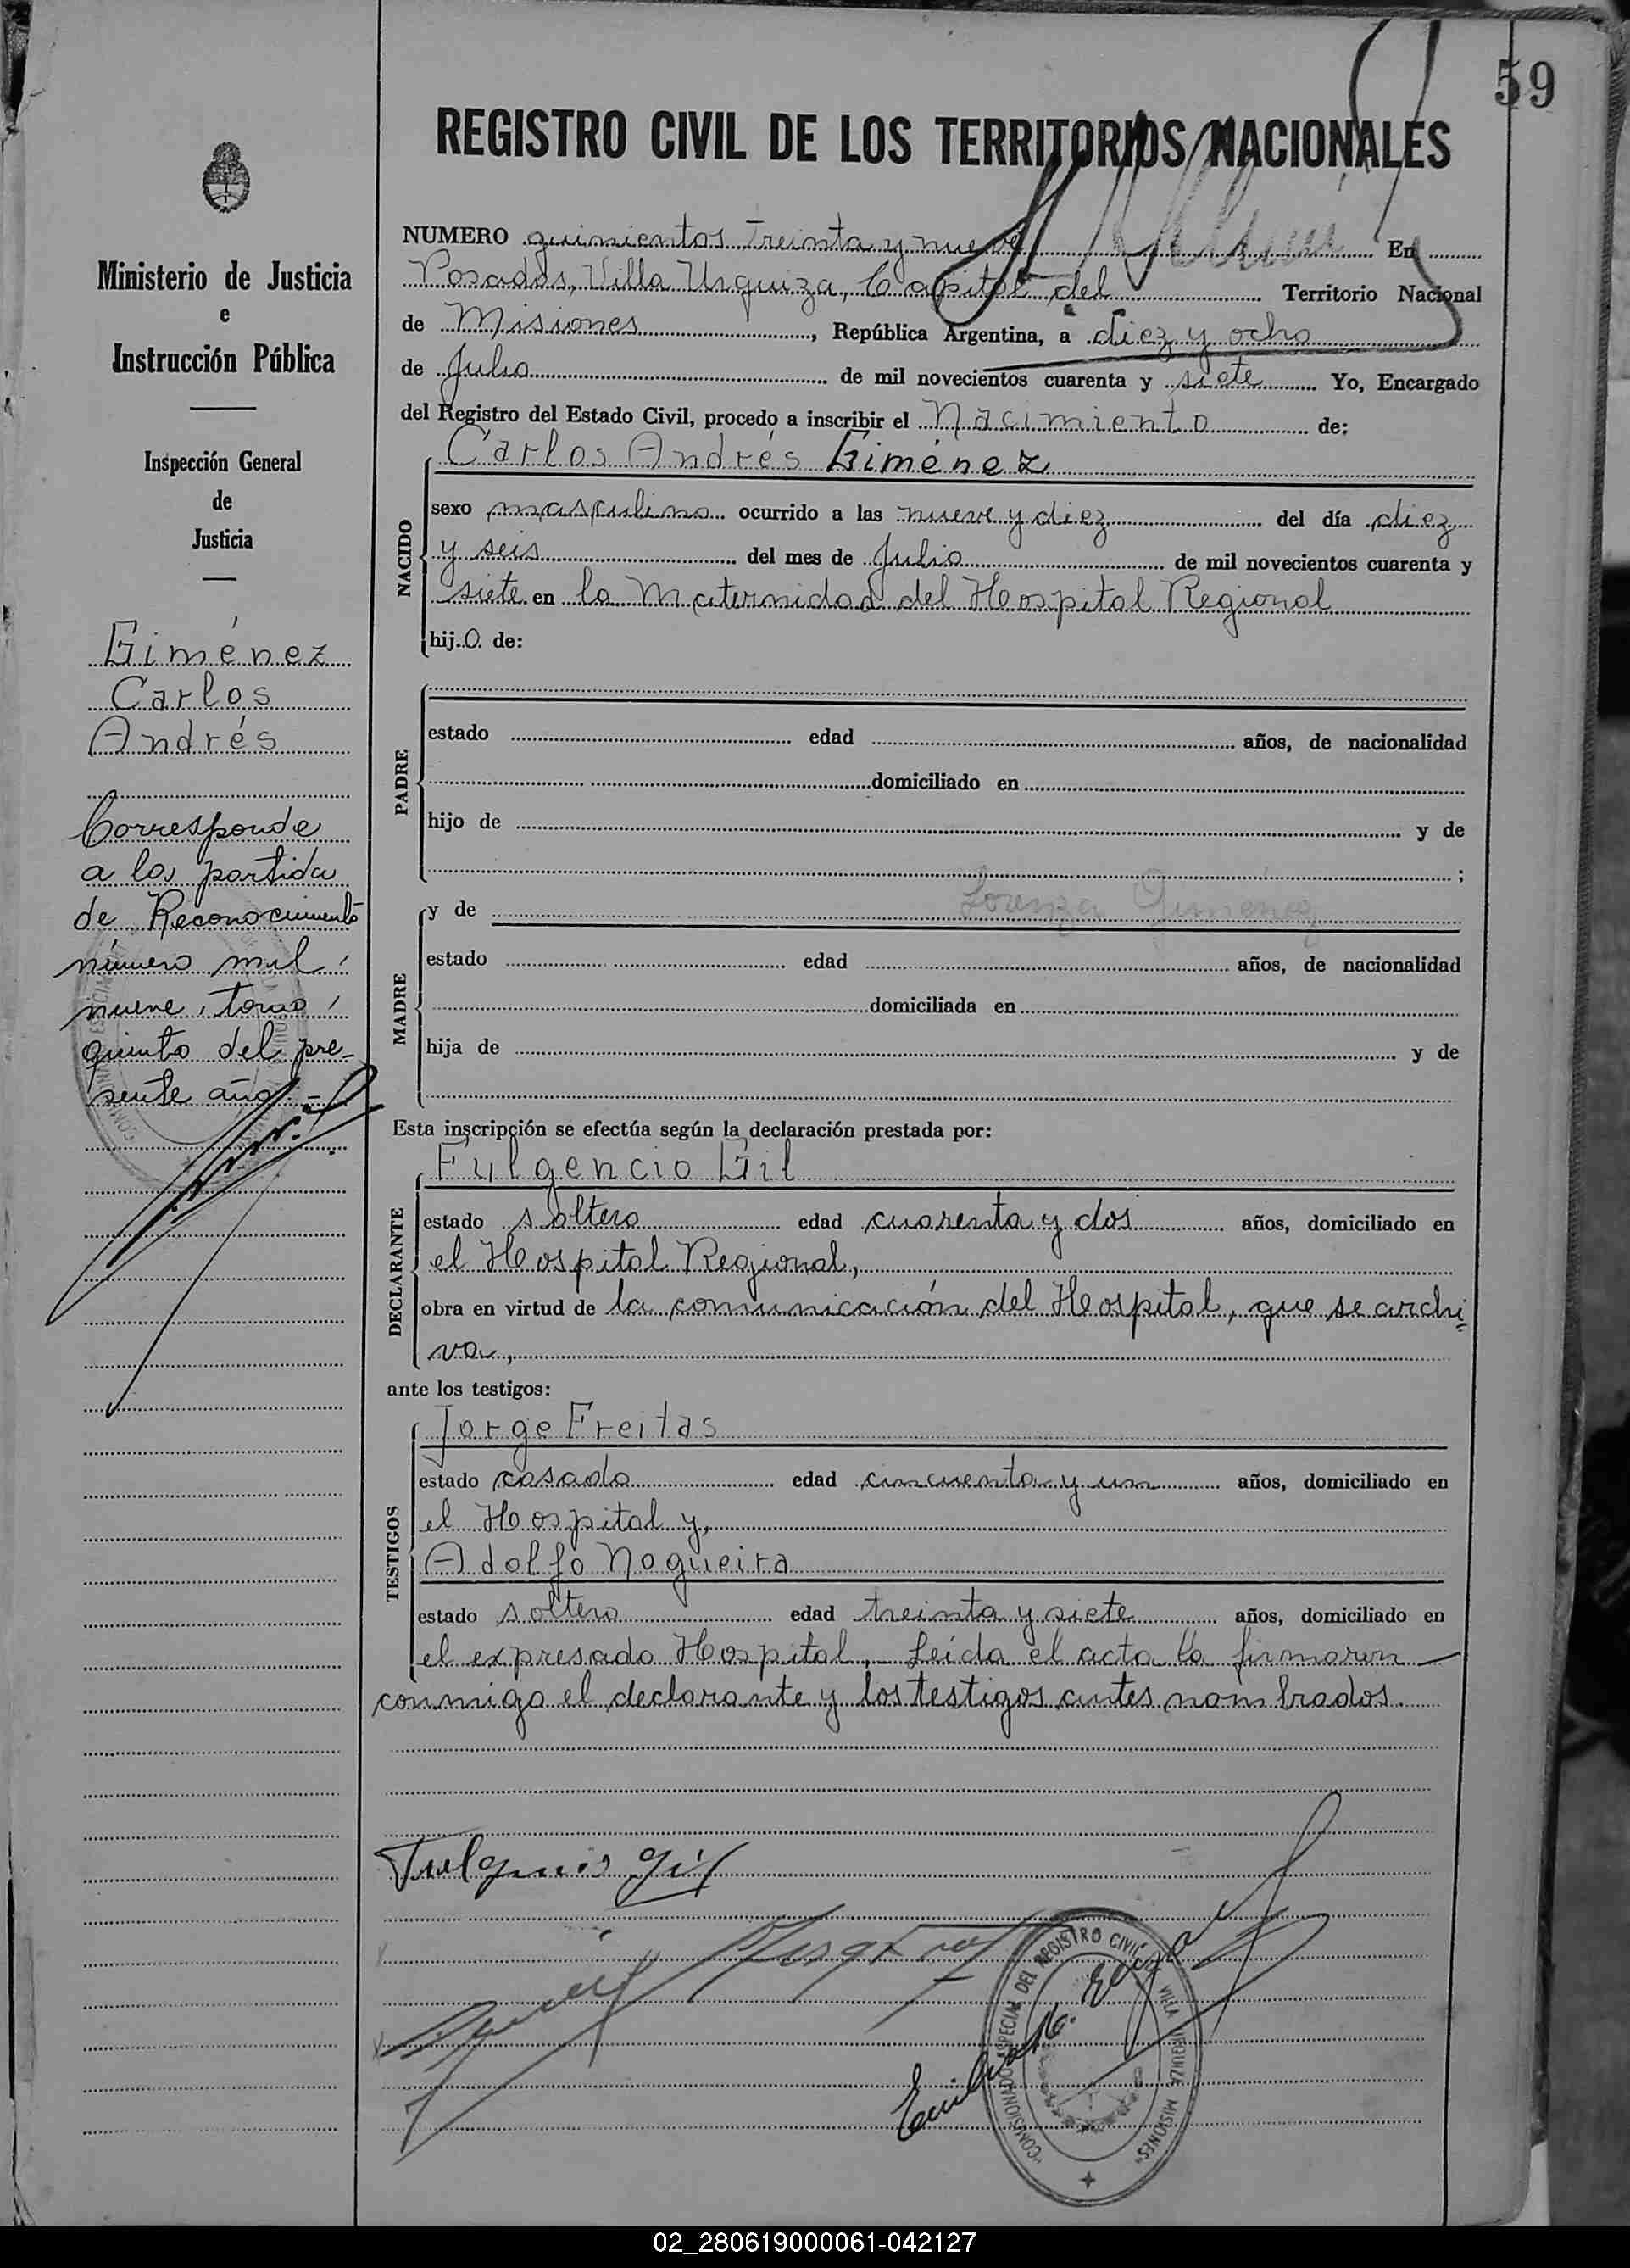 59
REGISTRO CIVIL DE LOS TERRITORIOS NACIONALES
Ministerio de Justicia
e
Instrucción Pública
Inspección General
de
Justicia
Giménez
Carlos
Andrés
Corresponde
a la partida
de Reconocimiento
número mil
nueve, tomo
quinto del pre-
sente año.-
NUMERO quinientos treinta y nueve En
Posadas, Villa Urquiza, Capital del Territorio Nacional
de Misiones, República Argentina, a diez y ocho
de Julio de mil novecientos cuarenta y siete Yo, Encargado
del Registro del Estado Civil, procedo a inscribir el Nacimiento de:
Carlos Andrés Giménez
NACIDO
sexo masculino ocurrido a las nueve y diez del día diez
y seis del mes de Julio de mil novecientos cuarenta y
siete en la Maternidad del Hospital Regional
hijo de:
PADRE
estado edad años, de nacionalidad
domiciliado en
hijo de y de
;
MADRE
y de Lorenza Gimenez
estado edad años, de nacionalidad
domiciliada en
hija de y de
Esta inscripción se efectúa según la declaración prestada por:
DECLARANTE
Fulgencio Gil
estado soltero edad cuarenta y dos años, domiciliado en
el Hospital Regional,
obra en virtud de la comunicación del Hospital, que se archi=
va,
ante los testigos:
TESTIGOS
Jorge Freitas
estado casado edad cincuenta y un años, domiciliado en
el Hospital y,
Adolfo Nogueira
estado soltero edad treinta y siete años, domiciliado en
el expresado Hospital. Leída el acta la firmaron
conmigo el declarante y los testigos antes nombrados.
Fulgencio Gil
COMISIONADO ESPECIAL DEL REGISTRO CIVIL
VILLA URQUIZA MISIONES
02_280619000061-042127